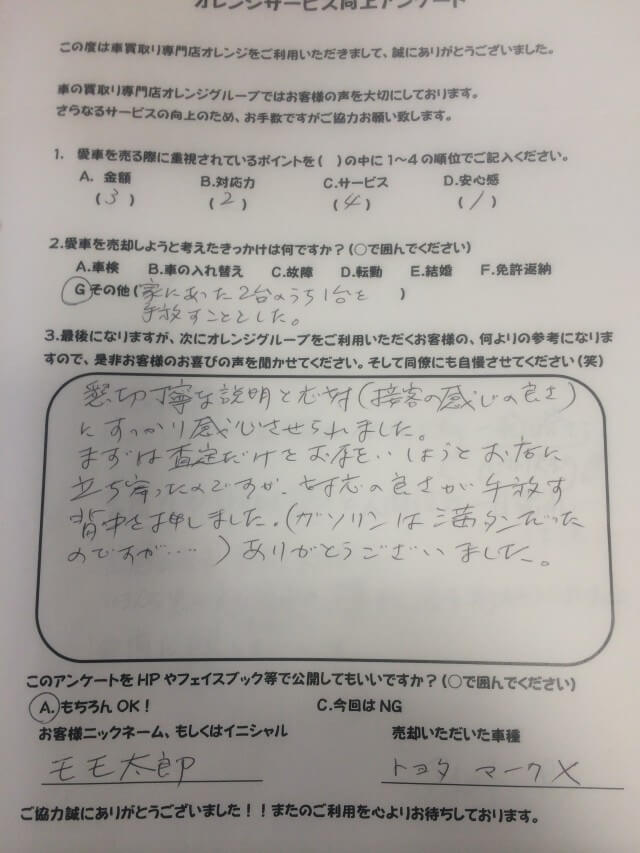 オレンジサービス向上アンケート
この度は車買取り専門店オレンジをご利用いただきまして、誠にありがとうございました。
車の買取り専門店オレンジグループではお客様の声を大切にしております。
さらなるサービスの向上のため、お手数ですがご協力お願い致します。
1. 愛車を売る際に重視されているポイントを( )の中に1～4の順位でご記入ください。
A. 金額 B.対応力 C.サービス D.安心感
(3) (2) (4) (1)
2.愛車を売却しようと考えたきっかけは何ですか?(○で囲んでください)
A.車検 B.車の入れ替え C.故障 D.転勤 E.結婚 F.免許返納
G その他(家にあった2台のうち1台を )
手放すこととした。
3.最後になりますが、次にオレンジグループをご利用いただくお客様の、何よりの参考になりま
すので、是非お客様のお喜びの声を聞かせてください。そして同僚にも自慢させてください(笑)
懇切丁寧な説明と応対(接客の感じの良さ)
にすっかり感心させられました。
まずは査定だけをお願いしようとお店に
立ち寄ったのですが、対応の良さが手放す
背中を押しました。(ガソリンは満タンだった
のですが…..)ありがとうございました。
このアンケートをHPやフェイスブック等で公開してもいいですか?(○で囲んでください)
A.もちろんOK! C.今回はNG
お客様ニックネーム、もしくはイニシャル 売却いただいた車種
モモ太郎 トヨタ マークX
ご協力誠にありがとうございました!!またのご利用を心よりお待ちしております。